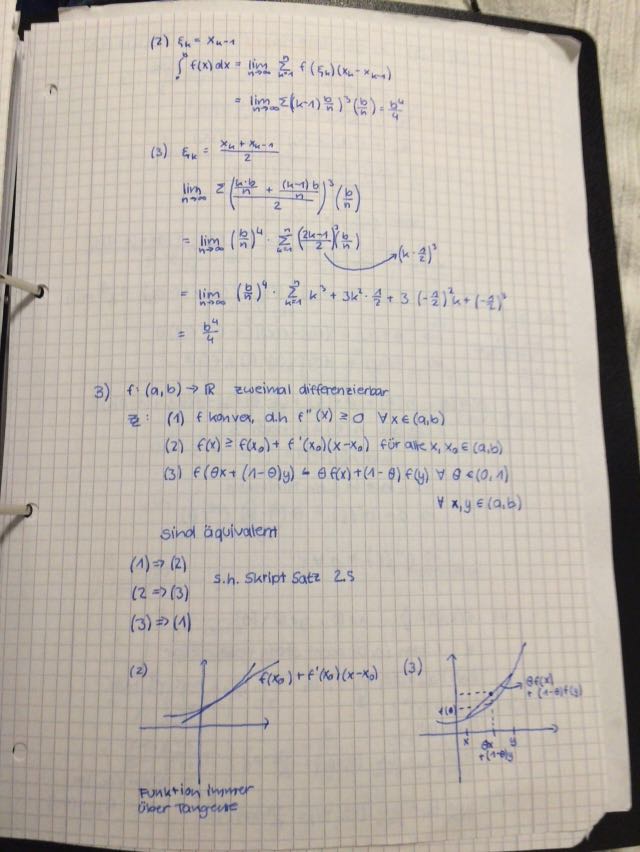 (2) ξₖ = xₖ₋₁
∫₀ᵇ f(x) dx = lim_{n→∞} Σ_{k=1}^{n} f(ξₖ)(xₖ - xₖ₋₁)
= lim_{n→∞} Σ((k-1) b/n)³ (b/n) = b⁴/4
(3) ξₖ = (xₖ + xₖ₋₁)/2
lim_{n→∞} Σ ((k·b/n + (k-1)b/n)/2)³ (b/n)
= lim_{n→∞} (b/n)⁴ · Σ_{k=1}^{n} ((2k-1)/2)³ (b/n) → (k - 1/2)³
= lim_{n→∞} (b/n)⁴ · Σ_{k=1}^{n} k³ + 3k² · 1/2 + 3 (-1/2)² k + (-1/2)³
= b⁴/4
3) f: (a,b) → ℝ zweimal differenzierbar
Z: (1) f konvex, d.h f''(x) ≥ 0 ∀x∈(a,b)
(2) f(x) ≥ f(x₀) + f'(x₀)(x-x₀) für alle x, x₀ ∈ (a,b)
(3) f(θx + (1-θ)y) ≤ θf(x) + (1-θ) f(y) ∀ θ ∈ (0,1)
∀ x,y ∈ (a,b)
sind äquivalent
(1) ⇒ (2)
(2 ⇒ (3) s.h. Skript Satz 2.5
(3) ⇒ (1)
(2) f(x₀) + f'(x₀)(x-x₀)
(3) θf(x) + (1-θ)f(y)
x θx + (1-θ)y y
Funktion immer
über Tangente